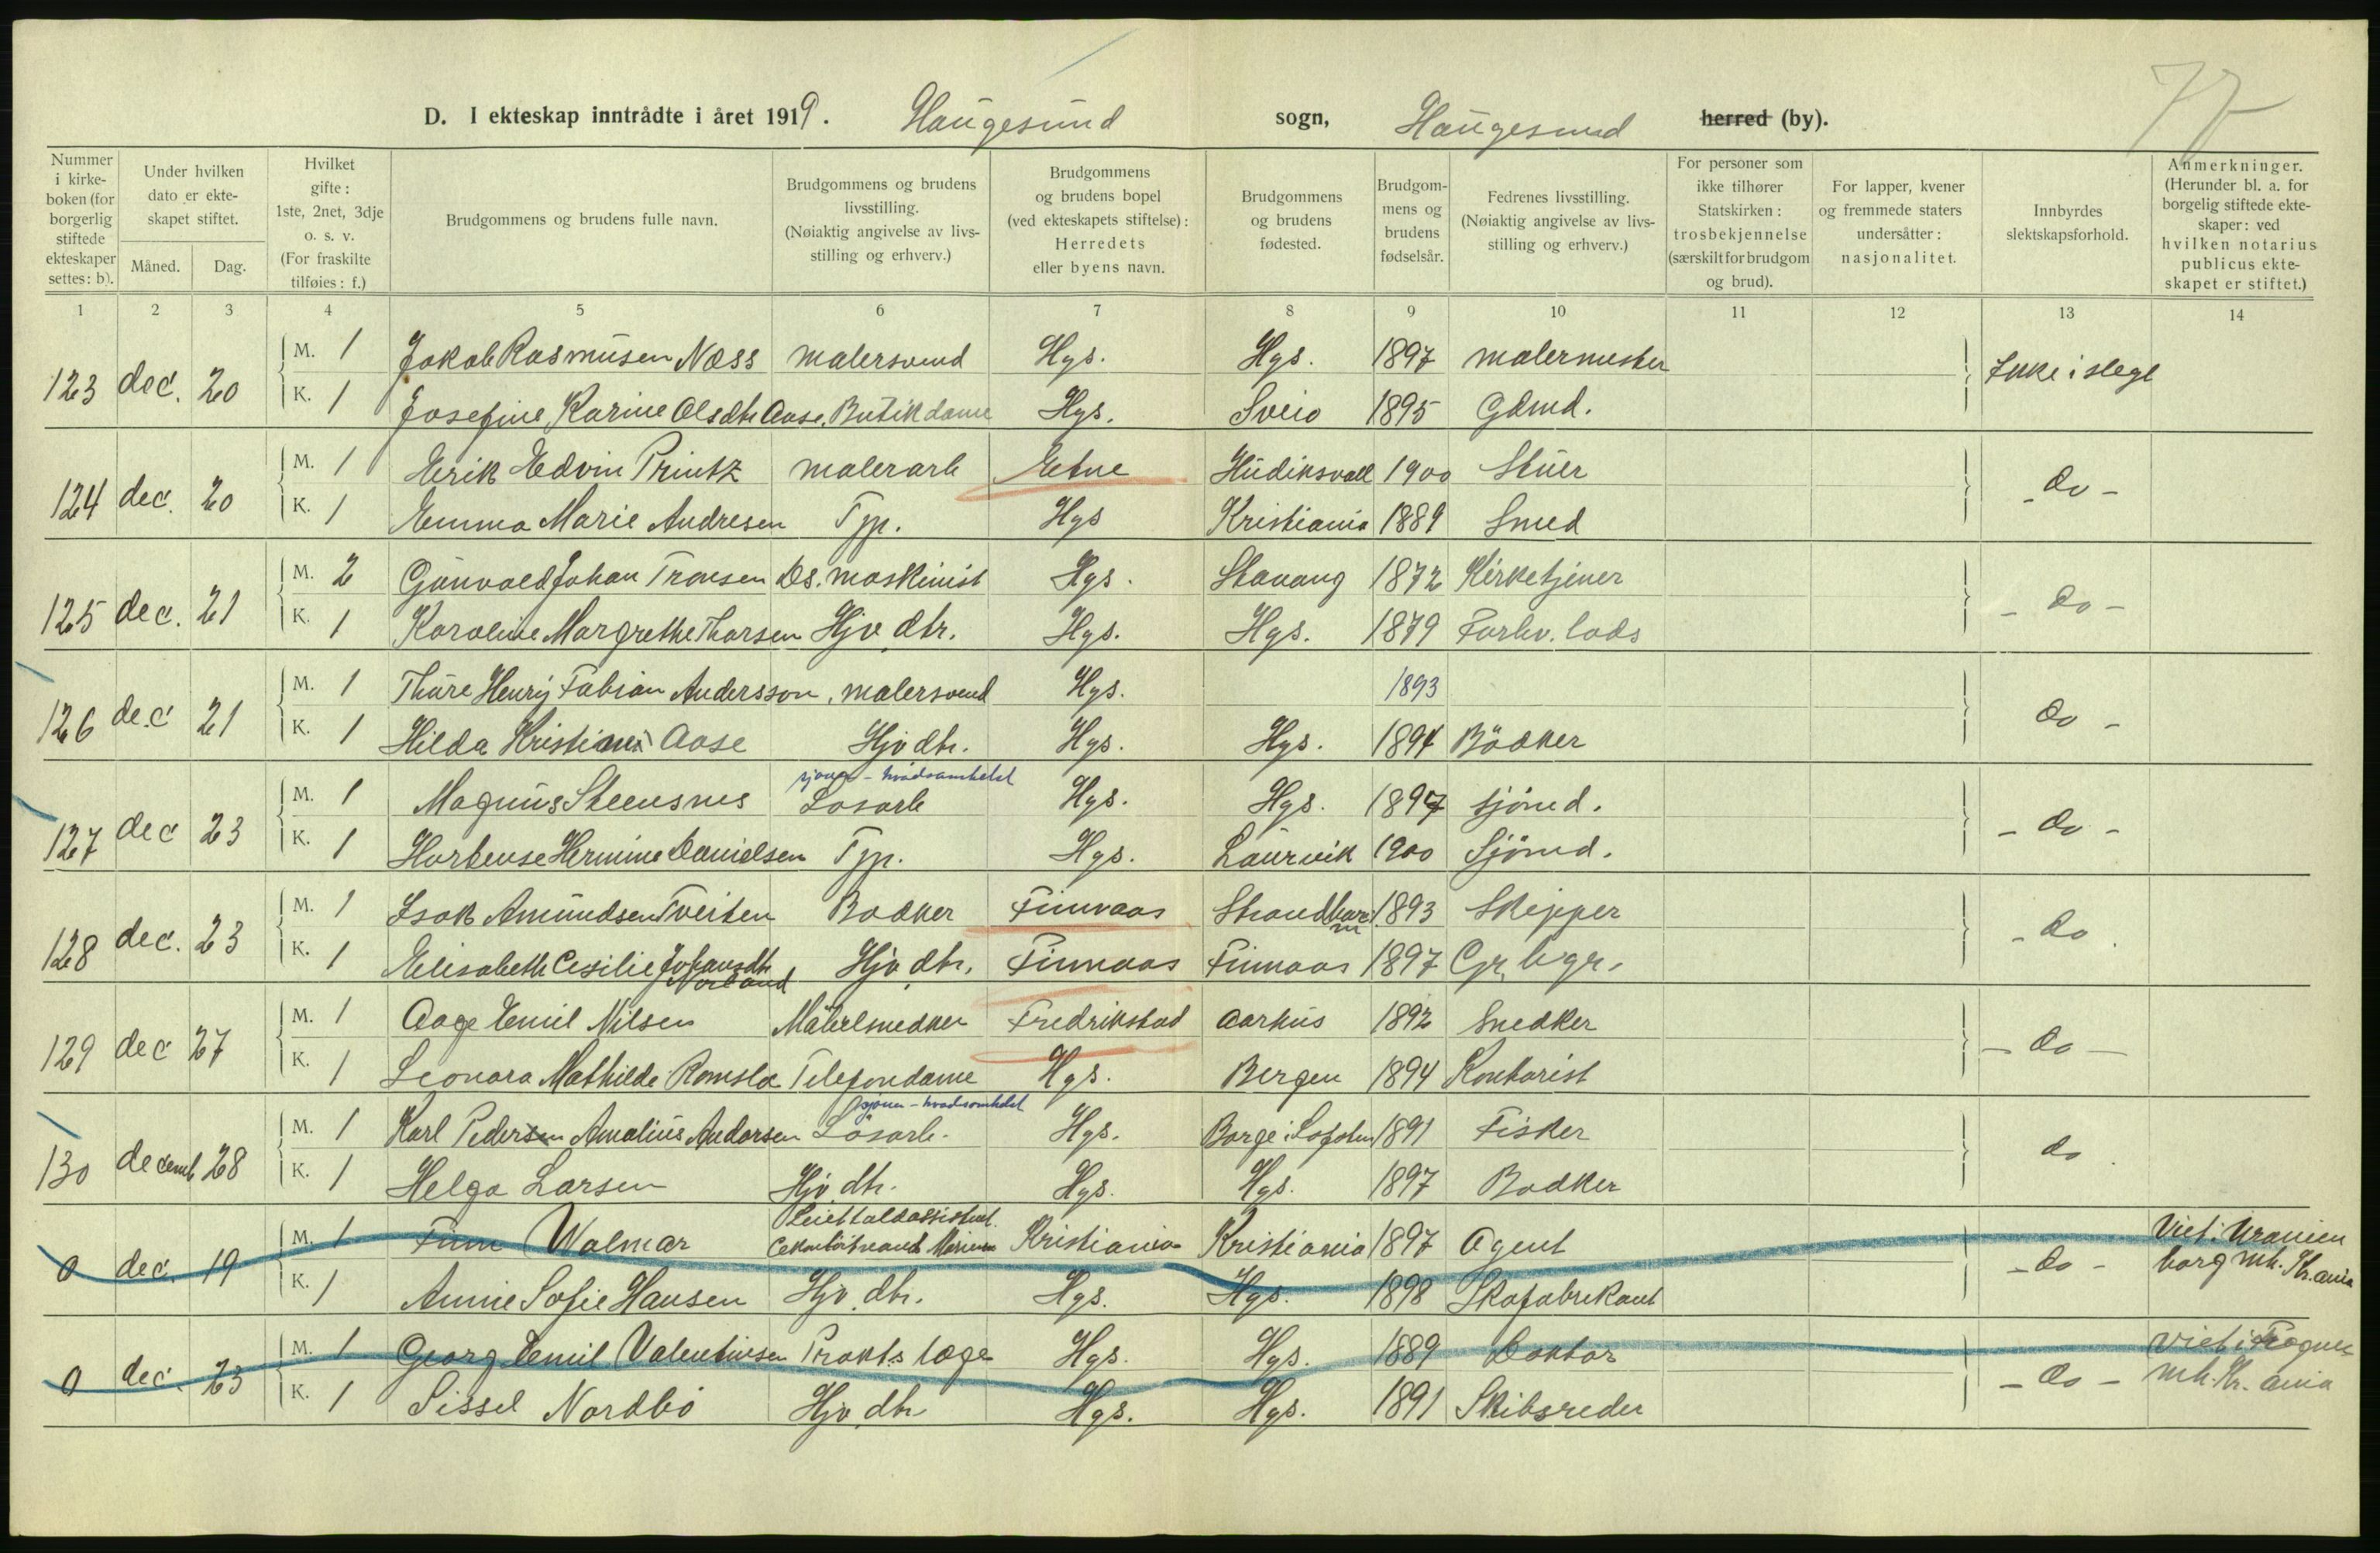 77
D. I ekteskap inntrådte i året 1919. Haugesund sogn, Haugesund herred (by).
Nummer i kirkeboken (for borgerlig stiftede ekteskaper settes: b).
Under hvilken dato er ekteskapet stiftet.
Måned.
Dag.
Hvilket gifte: 1ste, 2net, 3dje o. s. v. (For fraskilte tilføies: f.)
Brudgommens og brudens fulle navn.
Brudgommens og brudens livsstilling. (Nøiaktig angivelse av livsstilling og erhverv.)
Brudgommens og brudens bopel (ved ekteskapets stiftelse): Herredets eller byens navn.
Brudgommens og brudens fødested.
Brudgommens og brudens fødselsår.
Fedrenes livsstilling. (Nøiaktig angivelse av livsstilling og erhverv.)
For personer som ikke tilhører Statskirken: trosbekjennelse (særskilt for brudgom og brud).
For lapper, kvener og fremmede staters undersåtter: nasjonalitet.
Innbyrdes slektskapsforhold.
Anmerkninger. (Herunder bl. a. for borgelig stiftede ekteskaper: ved hvilken notarius publicus ekteskapet er stiftet.)
1 2 3 4 5 6 7 8 9 10 11 12 13 14
123 dec. 20 M. 1 Jakob Rasmusen Næss malersvend Hgs. Hgs. 1897 malermester Ikke i slegt
K. 1 Josefine Karine Olsdtr Aase. Butikdame Hgs. Sveio 1895 Gdmd.
124 dec. 20 M. 1 Erik Edvin Printz malerarb Etne Hudiksvall 1900 Stuer - do -
K. 1 Emma Marie Andresen Tjp. Hgs Kristiania 1889 Smed
125 dec. 21 M. 2 Gunvald Johan Tronsen Ds. maskinist Hgs. Stavang 1872 Kirketjener - do -
K. 1 Karoline Margrethe Thorsen Hjv. dtr. Hgs. Hgs. 1879 Forhv. lods
126 dec 21 M. 1 Thure Henrij Fabian Andersson, malersvend Hgs. 1893 do -
K. 1 Hilda Kristine Aase Hjv dtr. Hgs. Hgs. 1894 Bödker
127 dec 23 M. 1 Magnus Steensnes Losarb Hgs. Hgs. 1897 sjömd. - do -
K. 1 Hortense Hermine Danielsen Tjp. Hgs. Laurvik 1900 Sjömd.
128 dec. 23 M. 1 Isak Amundsen Tveiten Bødker Finnaas Strandbarm 1893 Skipper - do.
K. 1 Elisabeth Cesilie Johansdtr Norland Hjv. dtr. Finnaas Finnaas 1897 Gr. bgr.
129 dec 27 M. 1 Aage Emil Nilsen Møbelsnedker Fredrikstad Aarhus 1892 Snedker - do -
K. 1 Leonora Mathilde Romslo Telefondame Hgs. Bergen 1894 Kontorist
130 decemb 28 M. 1 Karl Pedersen Amalius Andorsen Lösarb. Hgs. Borge i Lofoten 1891 Fisker do.
K. 1 Helga Larsen Hjv. dtr. Hgs. Hgs. 1897 Bødker
0 dec. 19 M. 1 Finn Walmar Kristiania Kristiania 1897 Agent - do - Viet i Uranienborg mh. Kr.ania
K. 1 Annie Sofie Hansen Hjv. dtr. Hgs. Hgs. 1898 Skofabrikant
0 dec. 23 M. 1 Georg Emil Valentinsen Prakts læge Hgs. Hgs. 1889 Doktor - do - Viet i Frogner mh. Kr. ania
K. 1 Sissel Nordbö Hjv. dtr Hgs. Hgs. 1891 Skibsreder